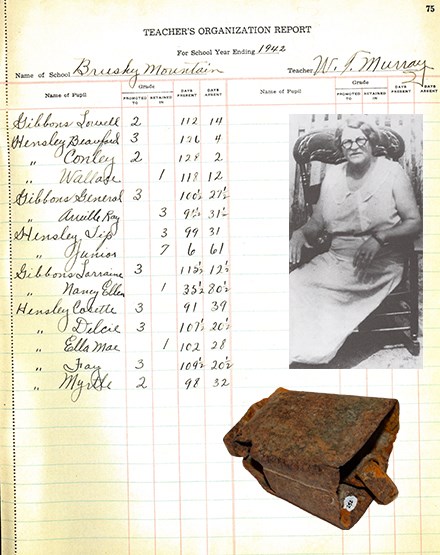 75
TEACHER'S ORGANIZATION REPORT
For School Year Ending 1942
Name of School Brusky Mountain Teacher W. T. Murray
Name of Pupil Grade PROMOTED TO RETAINED IN DAYS PRESENT DAYS ABSENT Name of Pupil Grade PROMOTED TO RETAINED IN DAYS PRESENT DAYS ABSENT
Gibbons Lowell 2 112 14
Hensley Beauford 3 126 4
" Conley 2 128 2
" Wallace 1 118 12
Gibbons General 3 100½ 27½
" Arville Ray 3 31½
Hensley Sip 3 99 31
" Junior 7 6 61
Gibbons Lorraine 3 112½
" Nancy Ellen 1 35½ 80½
Hensley Colette 3 91 39
" Delcie 3 107½ 20½
" Ella Mae 1 102 28
" Fay 3 109½ 20½
" Myrtle 2 98 32